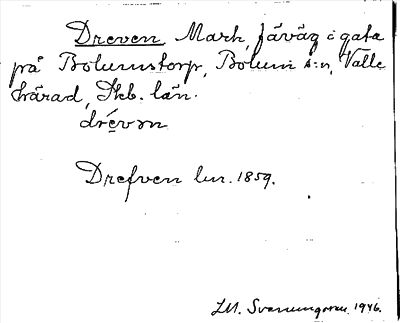 Dreven Mark, fäväg o gata
på Bolumstorp, Bolum s:n, Valle
härad, Skb. län.
drévən
Drefven lm. 1859.
Svenungsson 1946.